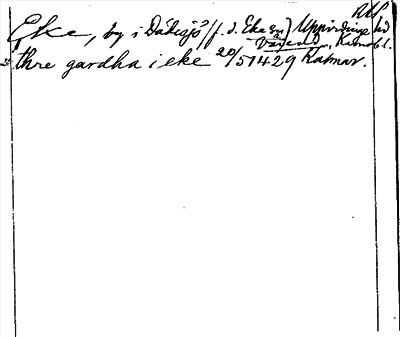 RAP
Eke, by i Dädesjö s/f. d. Eke sn) Uppvidinge hd
Värend, Kronob l.
thre gardha i eke 20/5 1429 Kalmar.